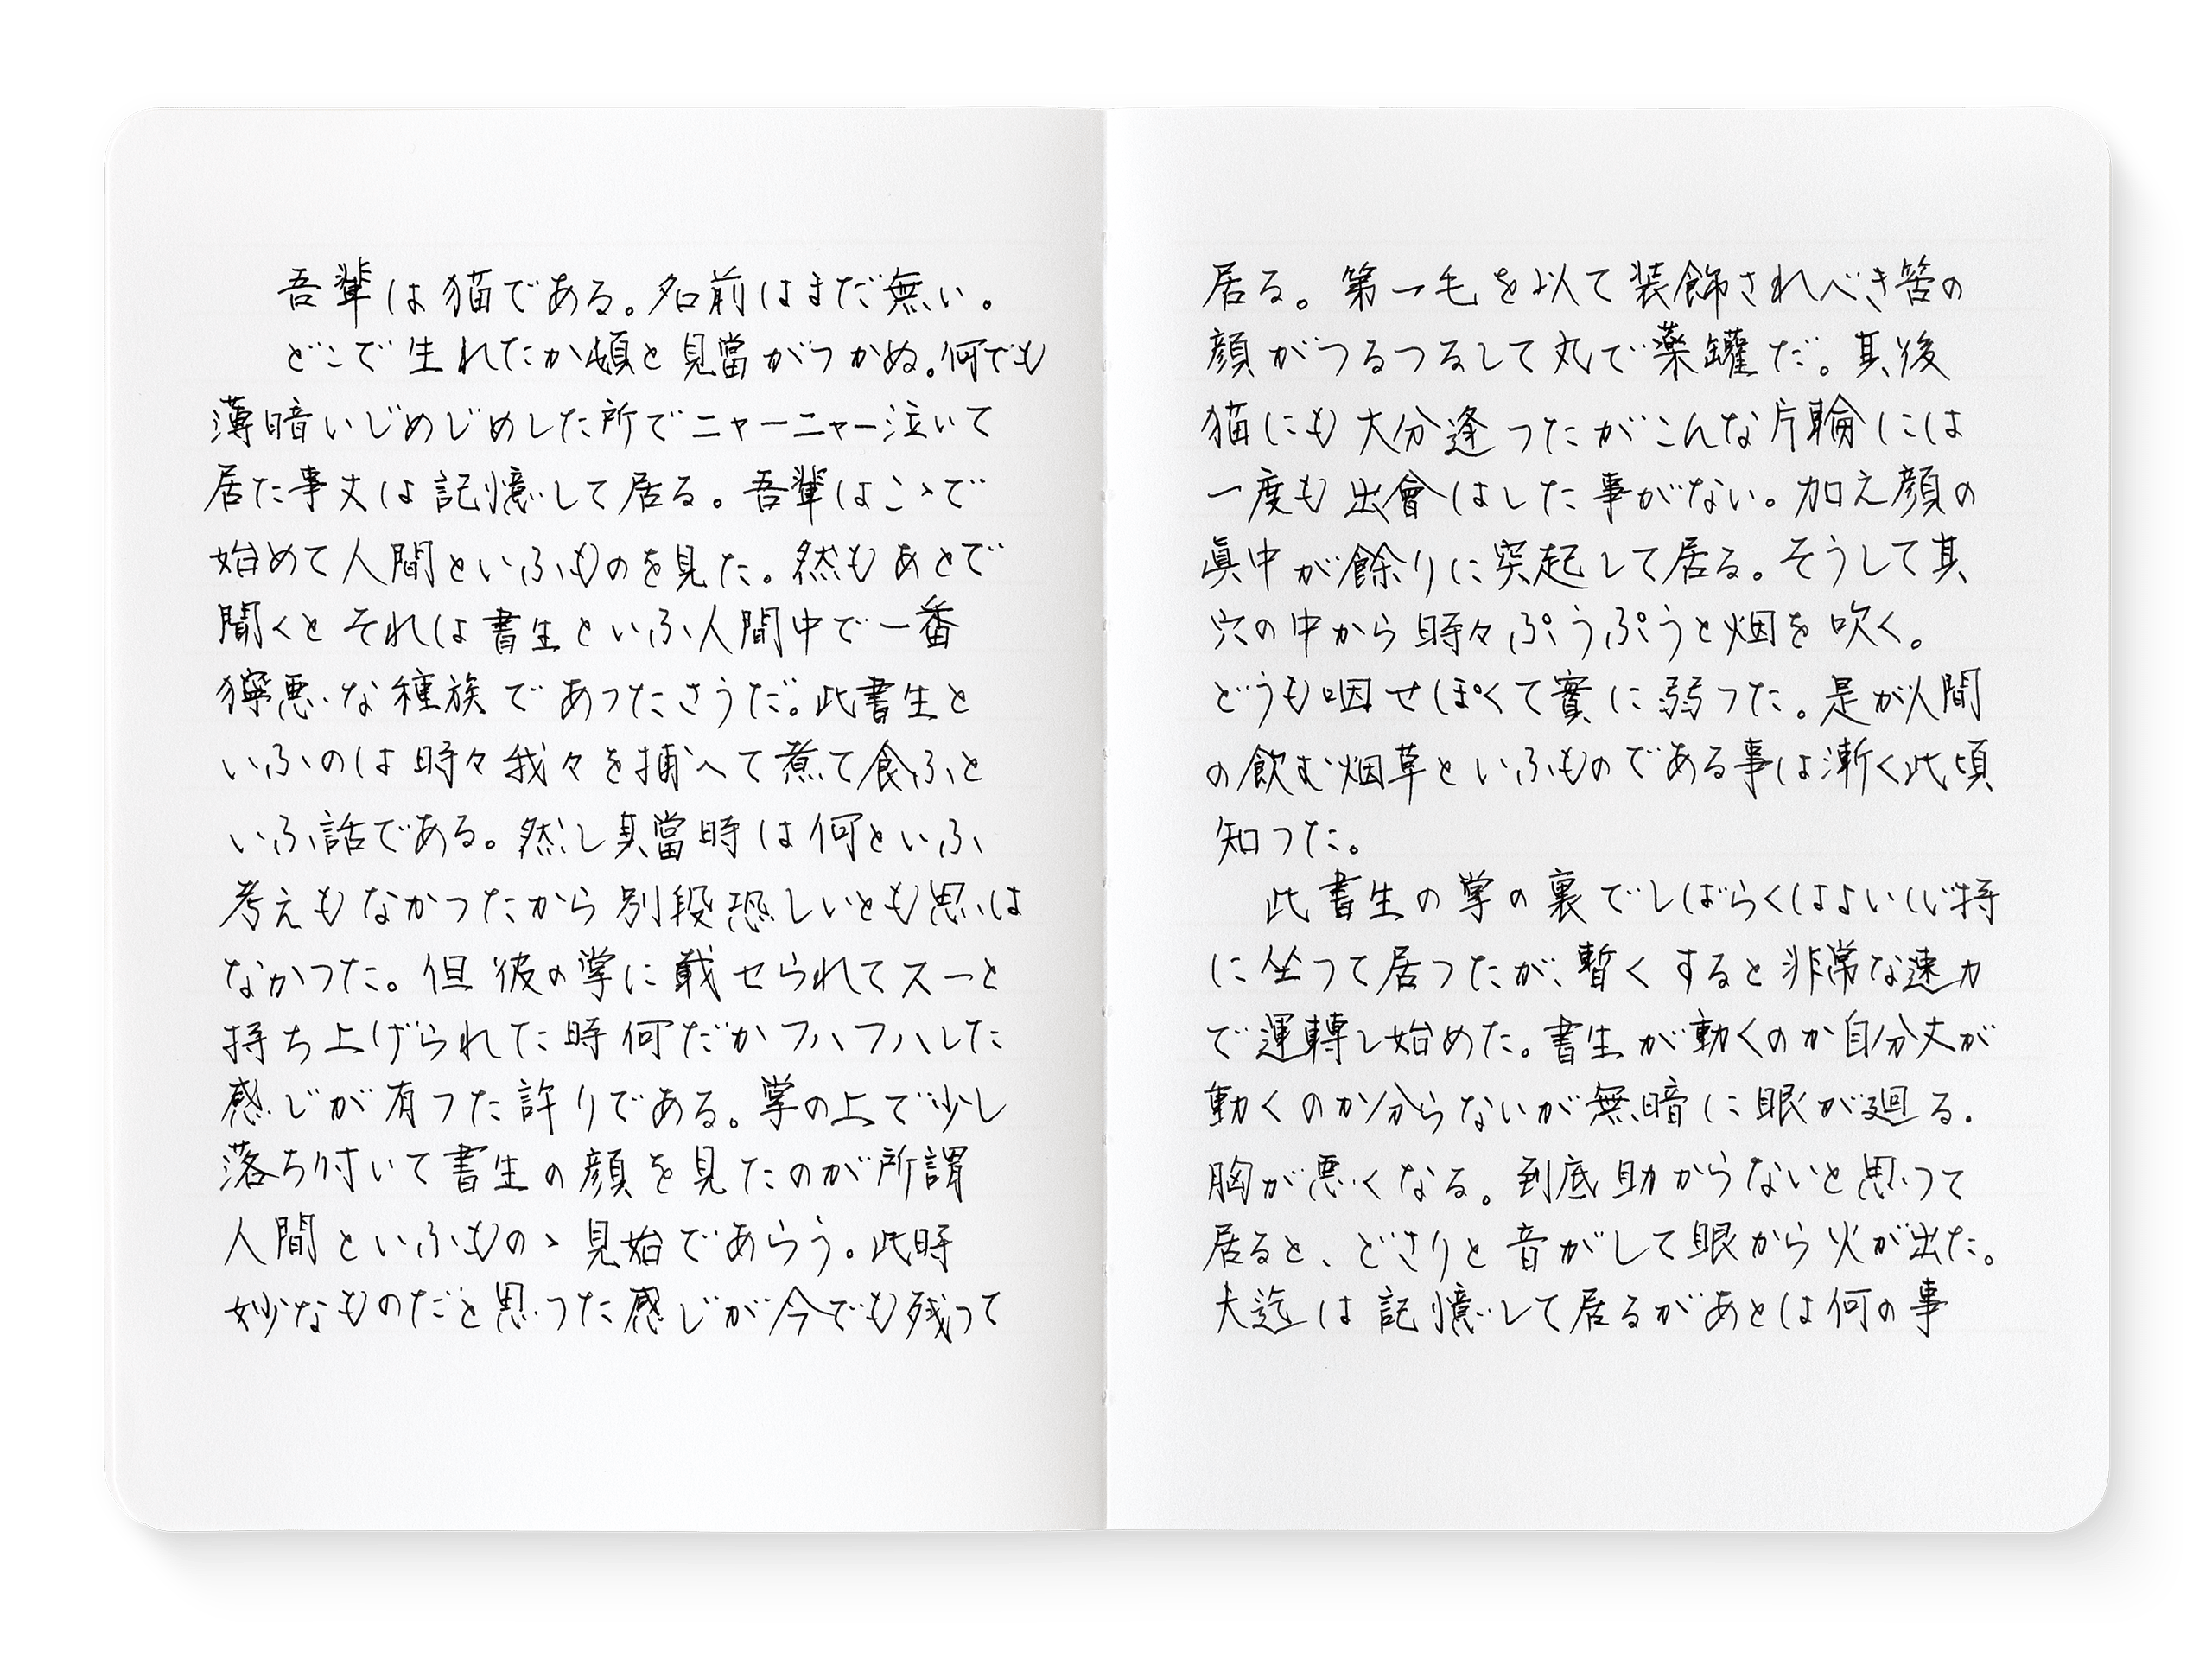 吾輩は猫である。名前はまだ無い。
どこで生れたか頓と見當がつかぬ。何でも
薄暗いじめじめした所でニャーニャー泣いて
居た事丈は記憶して居る。吾輩はこゝで
始めて人間といふものを見た。然もあとで
聞くとそれは書生といふ人間中で一番
獰悪な種族であつたさうだ。此書生と
いふのは時々我々を捕へて煮て食ふと
いふ話である。然し其當時は何といふ
考えもなかつたから別段恐しいとも思は
なかつた。但彼の掌に載せられてスーと
持ち上げられた時何だかフハフハした
感じが有つた許りである。掌の上で少し
落ち付いて書生の顔を見たのが所謂
人間といふものゝ見始であらう。此時
妙なものだと思つた感じが今でも残って
居る。第一毛を以て装飾されべき筈の
顔がつるつるして丸で薬罐だ。其後
猫にも大分逢つたがこんな片輪には
一度も出會はした事がない。加え顔の
眞中が餘りに突起して居る。そうして其
穴の中から時々ぷうぷうと烟を吹く。
どうも咽せぽくて實に弱つた。是が人間
の飲む烟草といふものである事は漸く此頃
知つた。
此書生の掌の裏でしばらくはよい心持
に坐つて居つたが、暫くすると非常な速力
で運轉し始めた。書生が動くのか自分丈が
動くのか分らないが無暗に眼が廻る。
胸が悪くなる。到底助からないと思つて
居ると、どさりと音がして眼から火が出た。
夫迄は記憶して居るがあとは何の事